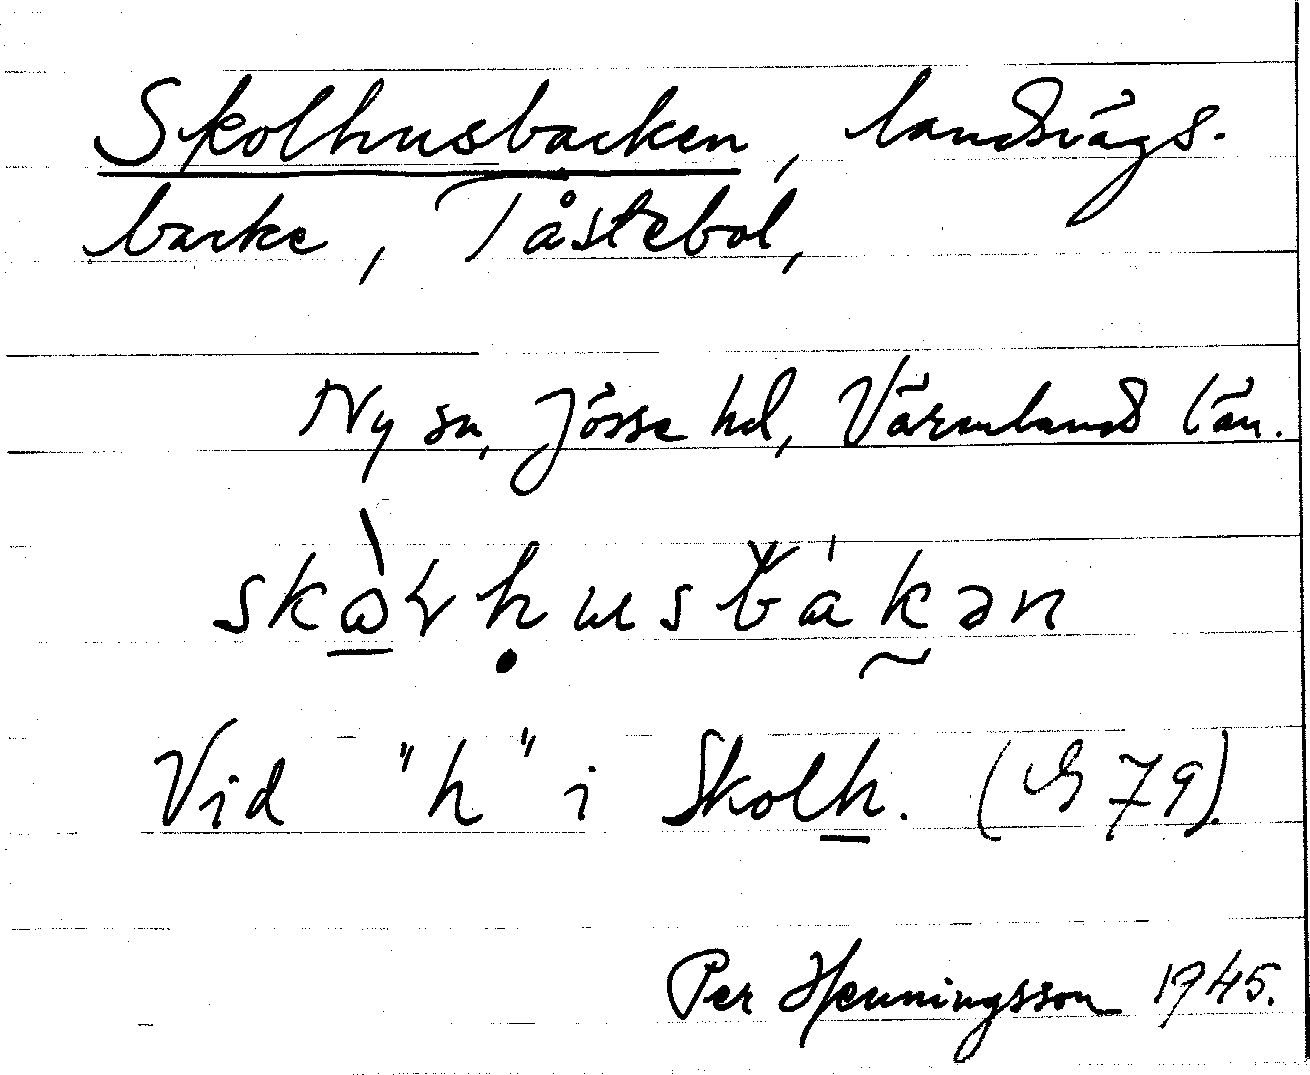 Skolhusbacken, landsvägs-
backe, Tåstebol,
Ny sn, Jösse hd, Värmlands län.
Vid "h" i Skolh. (G 79).
Per Henningsson 1945.